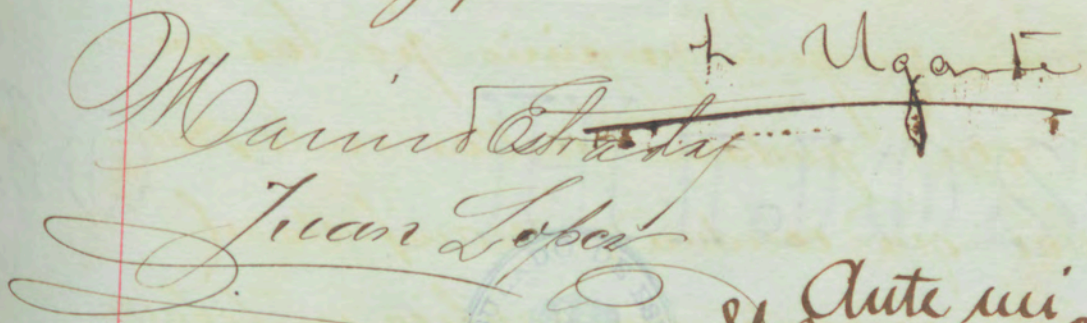 Ugarte
Marino Estrada
Juan Lopez
Ante mi